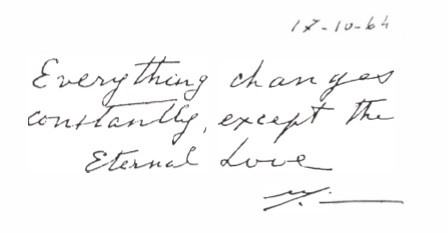 17-10-64
Everything changes
constantly, except the
Eternal Love